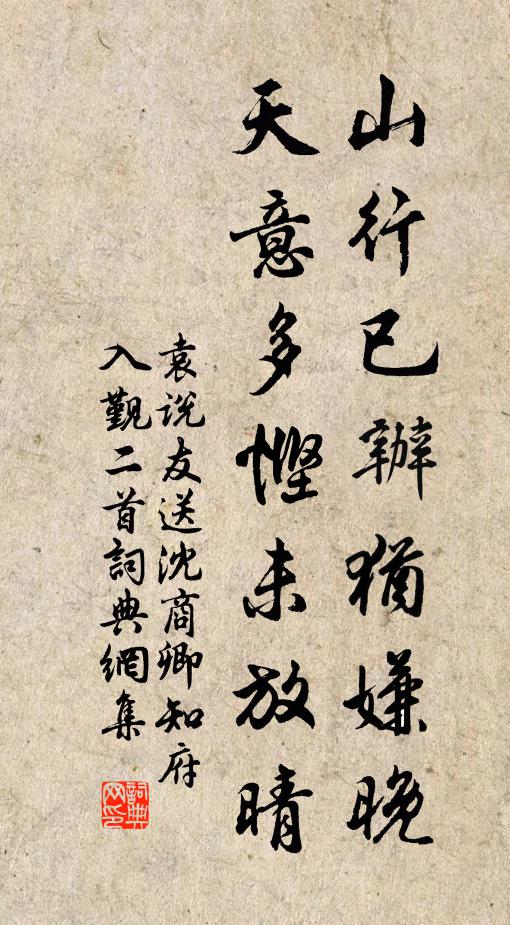 山行已辦猶嫌晚
天意多慳未放晴
袁説友送沈商卿知府
入覲二首詞典網集
詞典
网印